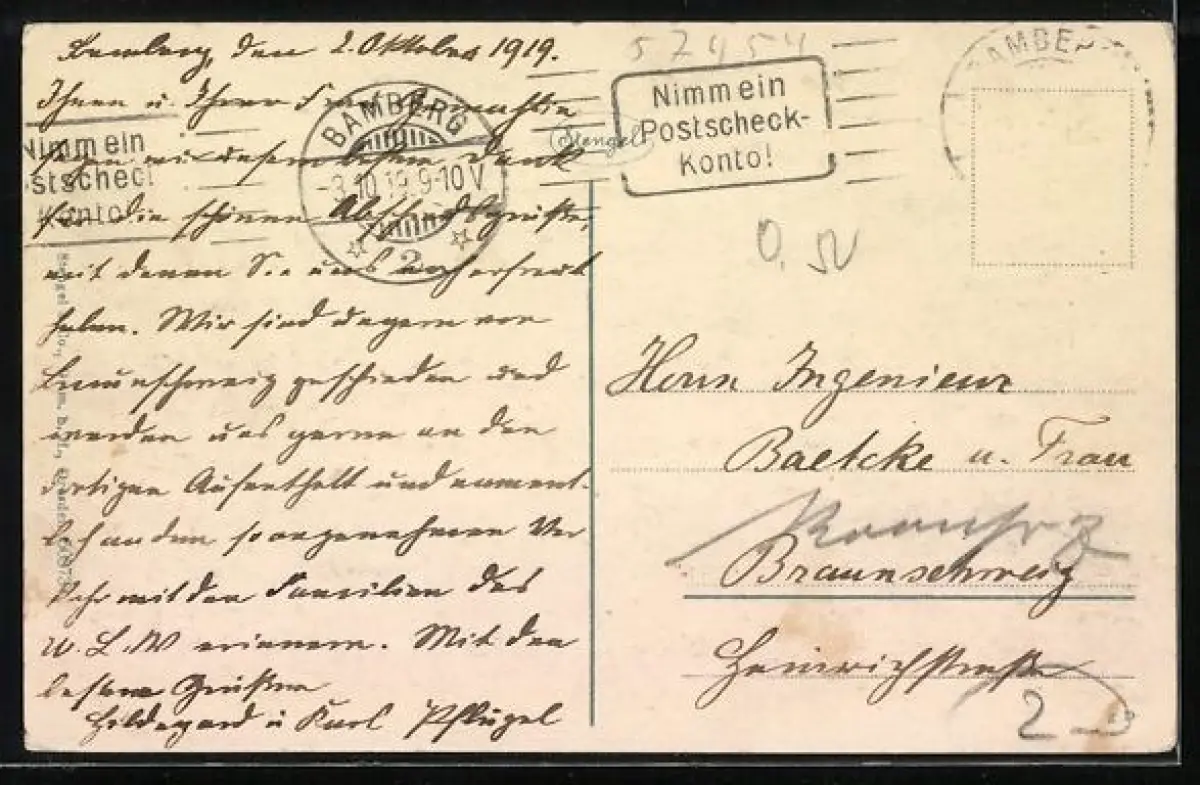 Bamberg, den 2. Oktober 1919.
Ihnen u. Ihrer Frau Gemahlin
sagen wir unsern besten Dank
für die schönen Abschiedsgrüße,
mit denen Sie uns noch erfreut
haben. Wir sind ungern von
Braunschweig geschieden und
werden uns gerne an den
dortigen Aufenthalt und nament-
lich an den so angenehmen Ver
kehr mit den Familien des
erinnern. Mit den
besten Grüßen
Hildegard u Karl Pflügel
Nimm ein
Postscheck-
Konto!
BAMBERG
-3.10.19.9-10V
2
Stengel
Nimm ein
stscheck
Konto
BAMBE
57454
0,50
Herrn Ingenieur
Baetcke u. Frau
Braunschweig
Heinrichstraße
2